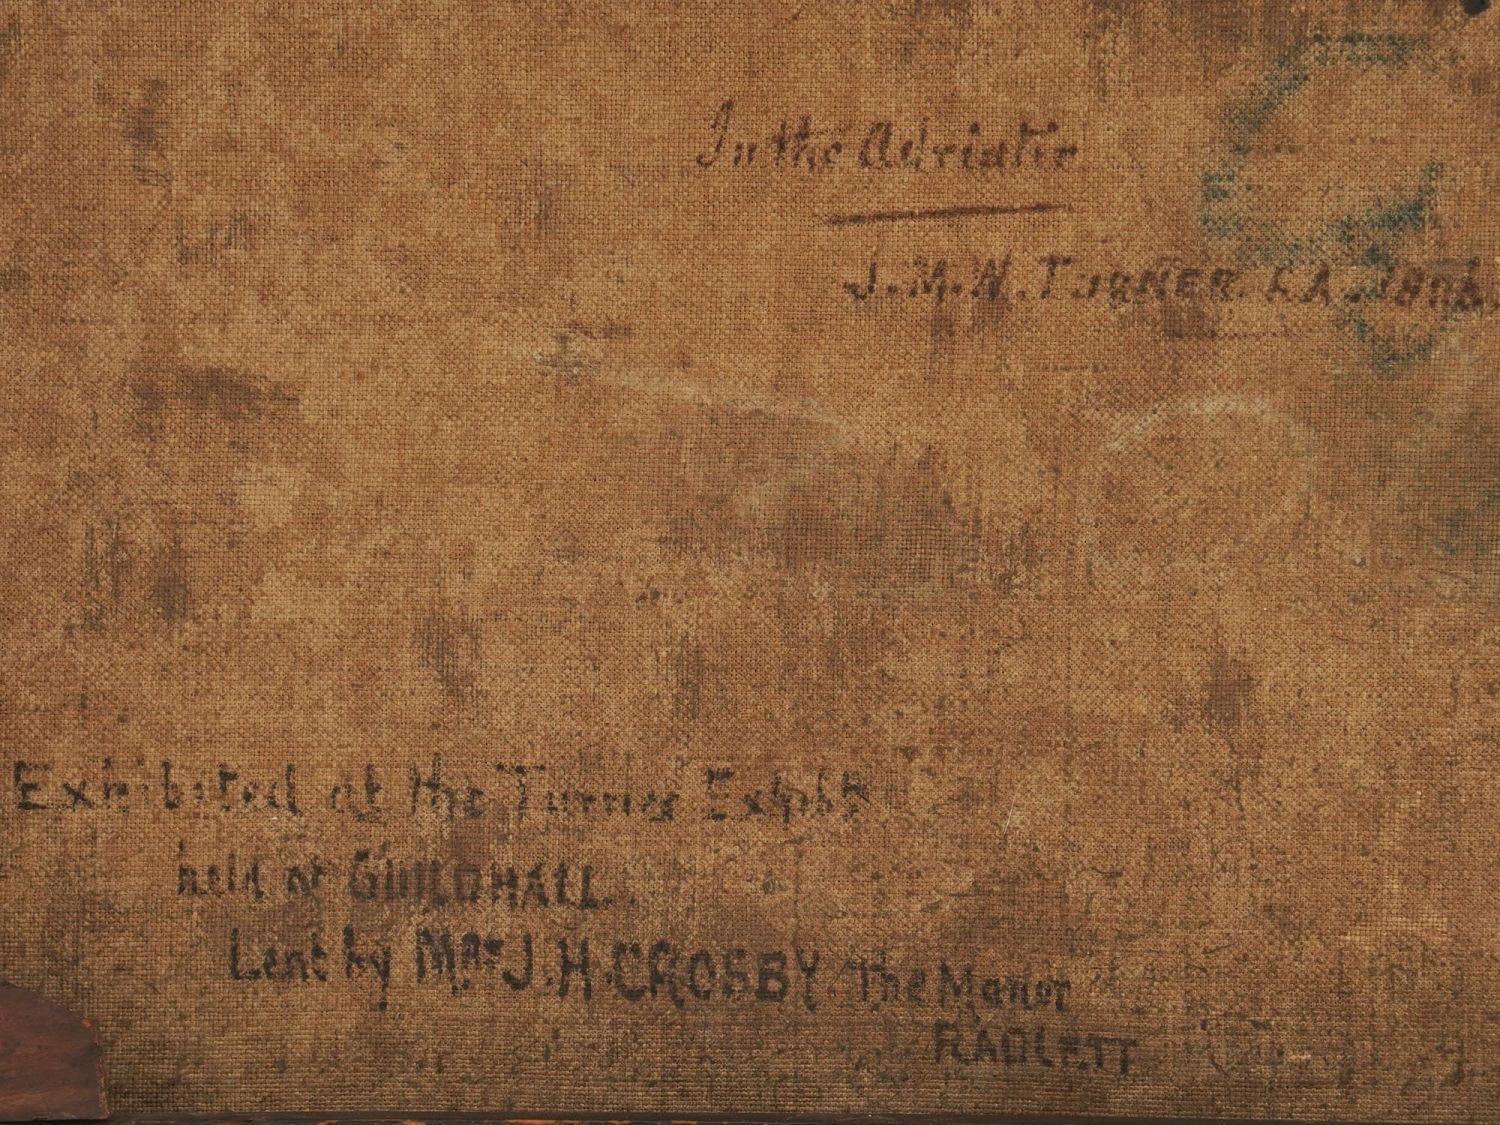 In the Adriatic
J. M. W. TURNER. R.A.
Exhibited at the Turner Exhibn
held at GUILDHALL.
Lent by Mr J. H. CROSBY. The Manor
RADLETT